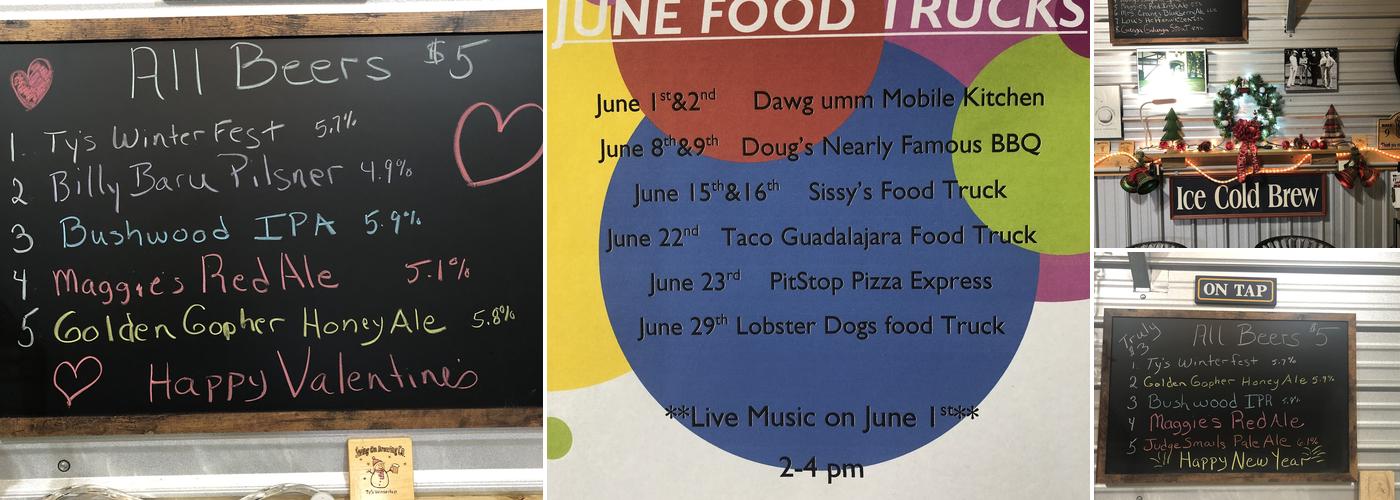 All Beers $5
1. Ty's Winter Fest 5.7%
2 Billy Baru Pilsner 4.9%
3 Bushwood IPA 5.9%
4 Maggie's Red Ale 5.1%
5 Golden Gopher Honey Ale 5.8%
Happy Valentine's
Ty's Winterfest
JUNE FOOD TRUCKS
June 1st&2nd Dawg umm Mobile Kitchen
June 8th&9th Doug's Nearly Famous BBQ
June 15th&16th Sissy's Food Truck
June 22nd Taco Guadalajara Food Truck
June 23rd PitStop Pizza Express
June 29th Lobster Dogs food Truck
**Live Music on June 1st**
2-4 pm
Ice Cold Brew
ON TAP
Truly $3
All Beers $5
1. Ty's Winterfest 5.7%
2 Golden Gopher Honey Ale 5.9%
3 Bushwood IPA
4 Maggies Red Ale
5 Judge Smails Pale Ale 6.1%
Happy New Year